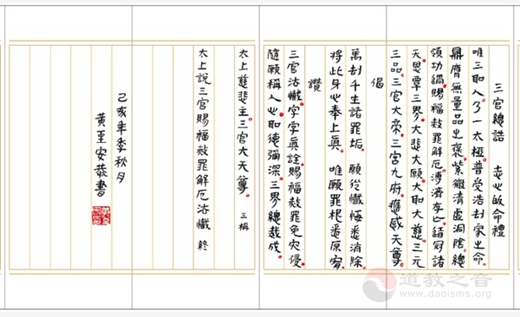 三官總誥 志心皈命禮
唯三聖人乃一太極普受浩刦家之命
鼎膺無量品之褒紫微清虛洞陰總
領功過賜福赦罪解厄溥濟存亡道冠諸
天恩覃三界大悲大願大聖大慈三元
三品三官大帝三宮九府應感天尊
偈
萬刦千生諸罪垢 願從懺悔悉消除
將此身心奉上真 唯願罪根悉原宥
讚
三官法懺字字真詮賜福赦罪免灾愆
隨願稱人心聖德彌深三界總裁成
太上慈悲主三官大天尊 三稱
太上說三官賜福赦罪解厄法懺 終
己亥年季秋月
黃至安恭書
道教之音
www.daoisms.org